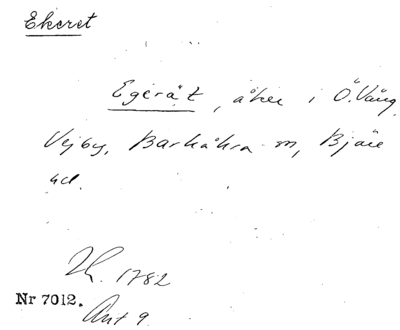 Ekeret
Egeråt, åker i Ö. Vång
Vejby, Barkåkra m, Bjäre
hd.
Lh. 1782
Nr 7012.
Akt 9